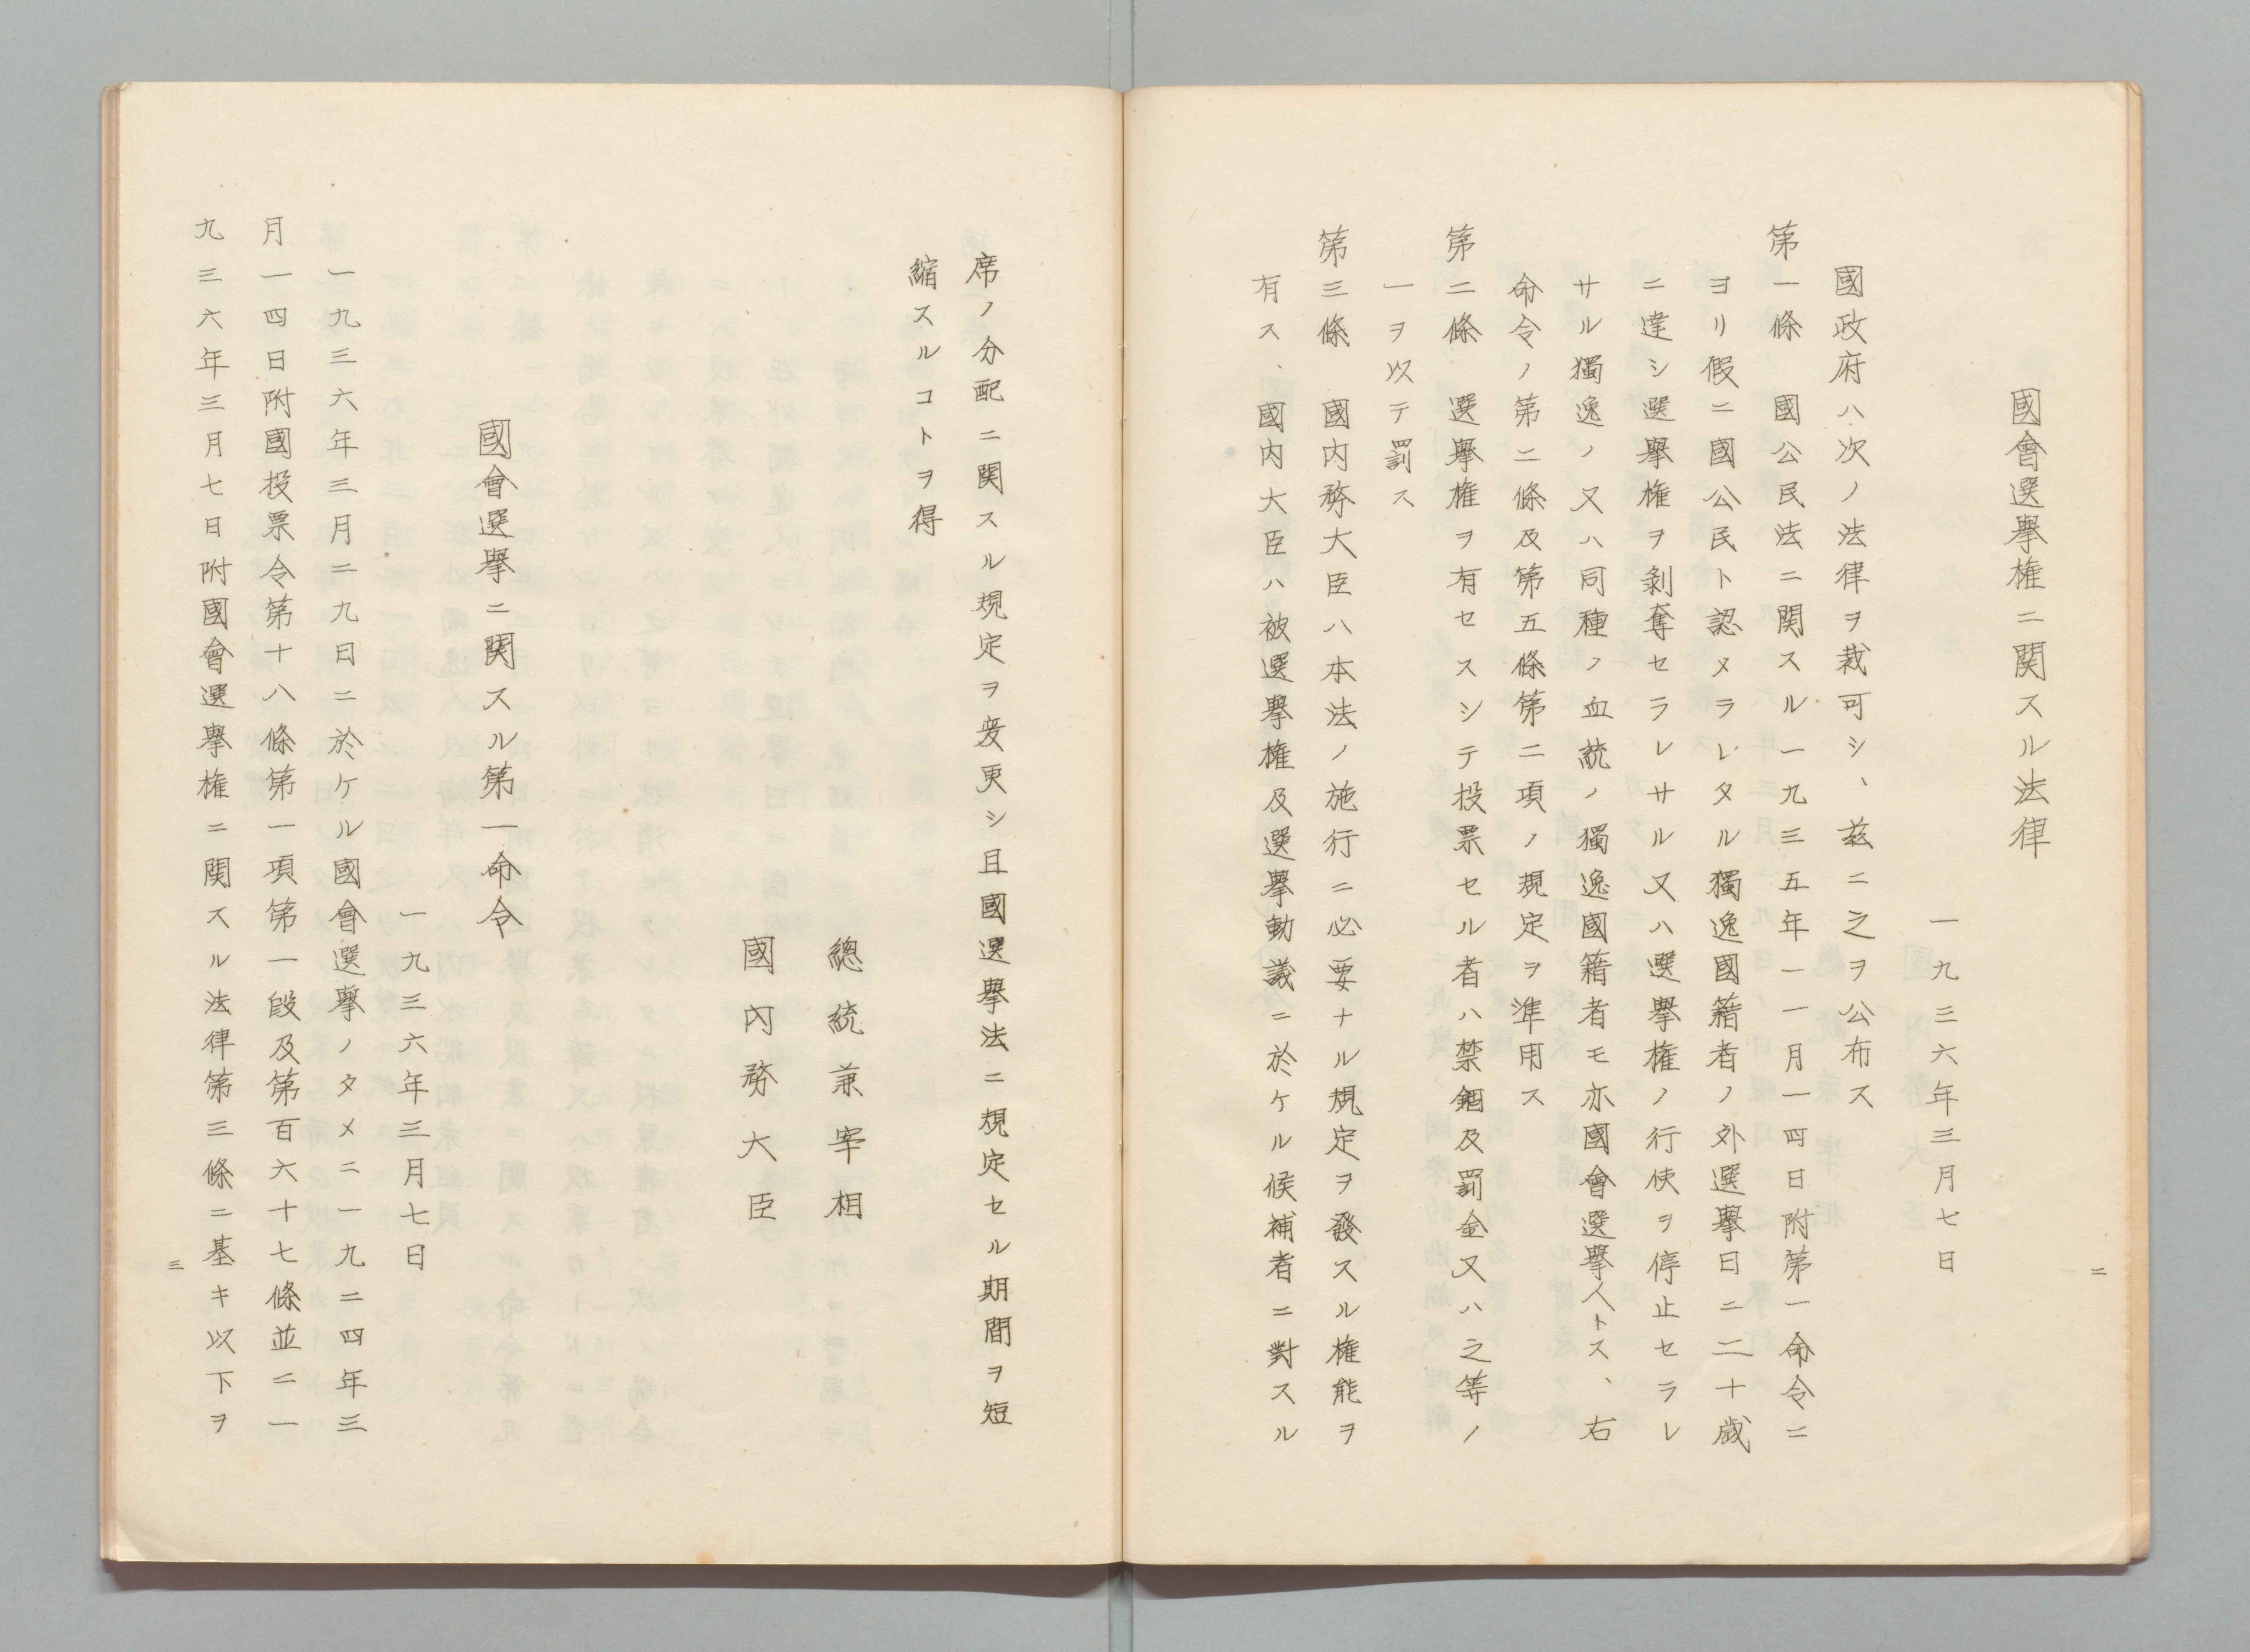 二
國會選擧権ニ関スル法律
一九三六年三月七日
國政府ハ次ノ法律ヲ裁可シ、茲ニ之ヲ公布ス
第一條 國公民法ニ関スル一九三五年一一月一四日附第一命令ニ
ヨリ假ニ國公民ト認メラレタル獨逸國籍者ノ外選擧日ニ二十歳
ニ達シ選擧権ヲ剝奪セラレサル又ハ選擧権ノ行使ヲ停止セラレ
サル獨逸ノ又ハ同種ノ血統ノ獨逸國籍者モ亦國會選擧人トス、右
命令ノ第二條及第五條第二項ノ規定ヲ準用ス
第二條 選擧権ヲ有セスシテ投票セル者ハ禁錮及罰金又ハ之等ノ
一ヲ以テ罰ス
第三條 國内務大臣ハ本法ノ施行ニ必要ナル規定ヲ發スル権能ヲ
有ス、國内大臣ハ被選擧権及選擧動議ニ於ケル候補者ニ對スル
席ノ分配ニ関スル規定ヲ変更シ且國選擧法ニ規定セル期間ヲ短
縮スルコトヲ得
總統兼宰相
國内務大臣
國會選擧ニ関スル第一命令
一九三六年三月七日
一九三六年三月二九日ニ於ケル國會選擧ノタメニ一九二四年三
月一四日附國投票令第十八條第一項第一段及第百六十七條並ニ一
九三六年三月七日附國會選擧権ニ関スル法律第三條ニ基キ以下ヲ
三